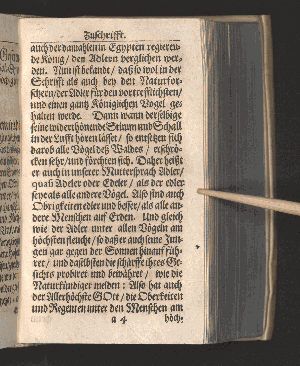 Zuschrifft.
auch der damahlen in Egypten regieren-
de König / den Adlern verglichen wer-
den. Nun ist bekandt / daß so wol in der
Schrifft als auch bey den Naturfor-
schern / der Adler für den vortrefflichsten /
und einen gantz Königlichen Vogel ge-
halten werde. Dann wann derselbige
seine widerthönende Stimm und Schall
in der Lufft hören lässet / so entsetzen sich
darob alle Vögel deß Waldes / erschrö-
cken sehr / und förchten sich. Daher heißt
er auch in unserer Muttersprach Adler /
quasi Adeler oder Edeler / als der edler
seye als alle andere Vögel. Also sind auch
Obrigkeiten edler und besser / als alle an-
dere Menschen auf Erden. Und gleich
wie der Adler unter allen Vögeln am
höchsten fleucht / so daß er auch seine Jun-
gen gar gegen der Sonnen hinauf füh-
ret / und daselbsten die schärffe ihres Ge-
sichts probiret und bewähret / wie die
Naturkündiger melden: Also hat auch
der Allerhöchste GOtt / die Oberkeiten
und Regenten unter den Menschen am
a 4 höch-